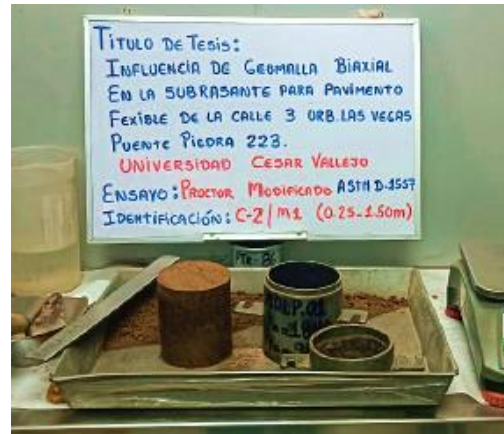 TÍTULO DE TESIS:
INFLUENCIA DE GEOMALLA BIAXIAL
EN LA SUBRASANTE PARA PAVIMENTO
FEXIBLE DE LA CALLE 3 URB.LAS VEGAS
PUENTE PIEDRA 223.
UNIVERSIDAD CESAR VALLEJO
ENSAYO: PROCTOR MODIFICADO ASTM D-1557
IDENTIFICACIÓN: C-2/M1 (0.25-1.50m)